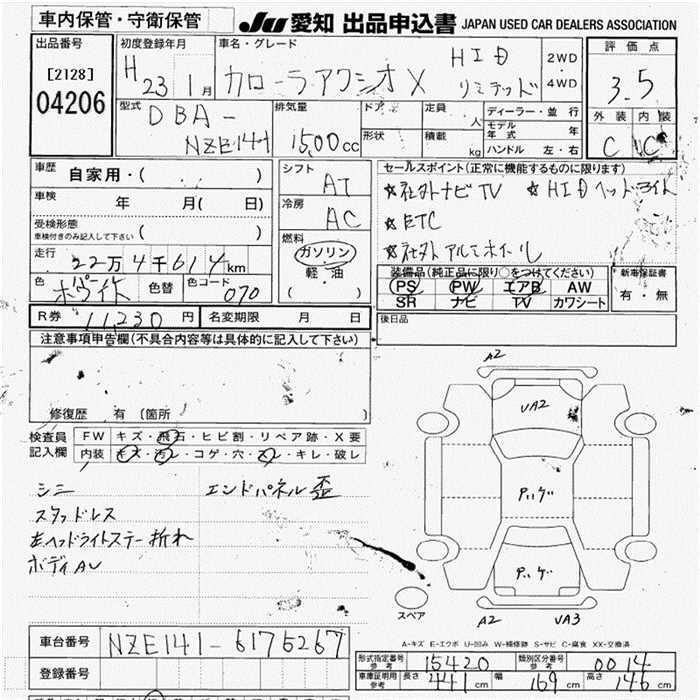 車内保管・守衛保管
JU 愛知 出品申込書 JAPAN USED CAR DEALERS ASSOCIATION
出品番号
[2128]
04206
初度登録年月
H 23 1月
車名・グレード
カローラアクシオ X HID リミテッド
2WD
・
4WD
評価点
3.5
外装 内装
C C
型式
DBA-
NZE141
排気量
1500cc
ドア
形状
定員 人
積載 kg
ディーラー・並行
モデル年式 年
ハンドル 左・右
車歴 自家用・( )
車検 年 月( 日)
受検形態
車検付きのみ記入して下さい ( )
走行 22万4千614km
色 色替 色コード 070
シフト
AT
冷房
AC
燃料
ガソリン
軽・油
( )
セールスポイント(正常に機能するものに限ります)
☆社外ナビTV ☆HIDヘッドライト
☆ETC
☆社外アルミホイール
装備品(純正品に限り○をつけてください)
PS PW エアB AW
SR ナビ TV カワシート
新車保証書
有・無
R券 11,230円 名変期限 月 日
後日品
注意事項申告欄(不具合内容等は具体的に記入して下さい)
修復歴 有 (箇所 )
検査員
記入欄
FW キズ・飛石・ヒビ割・リペア跡・X要
内装 キズ・汚レ・コゲ・穴・スレ・キレ・破レ
シミ エンドパネル歪
スタッドレス
左ヘッドライトステー折れ
ボディAU
A2
UA2
P.ハゲ
P.ハゲ
スペア
A2 UA3
A-キズ E-エクボ U-凹み W-補修跡 S-サビ C-腐食 XX-交換済
車台番号 NZE141-6175267
登録番号
形式指定番号 参考 15420 類別区分番号 参考 0014
車庫証明用 参考 長さ 441cm 幅 169cm 高さ 146cm